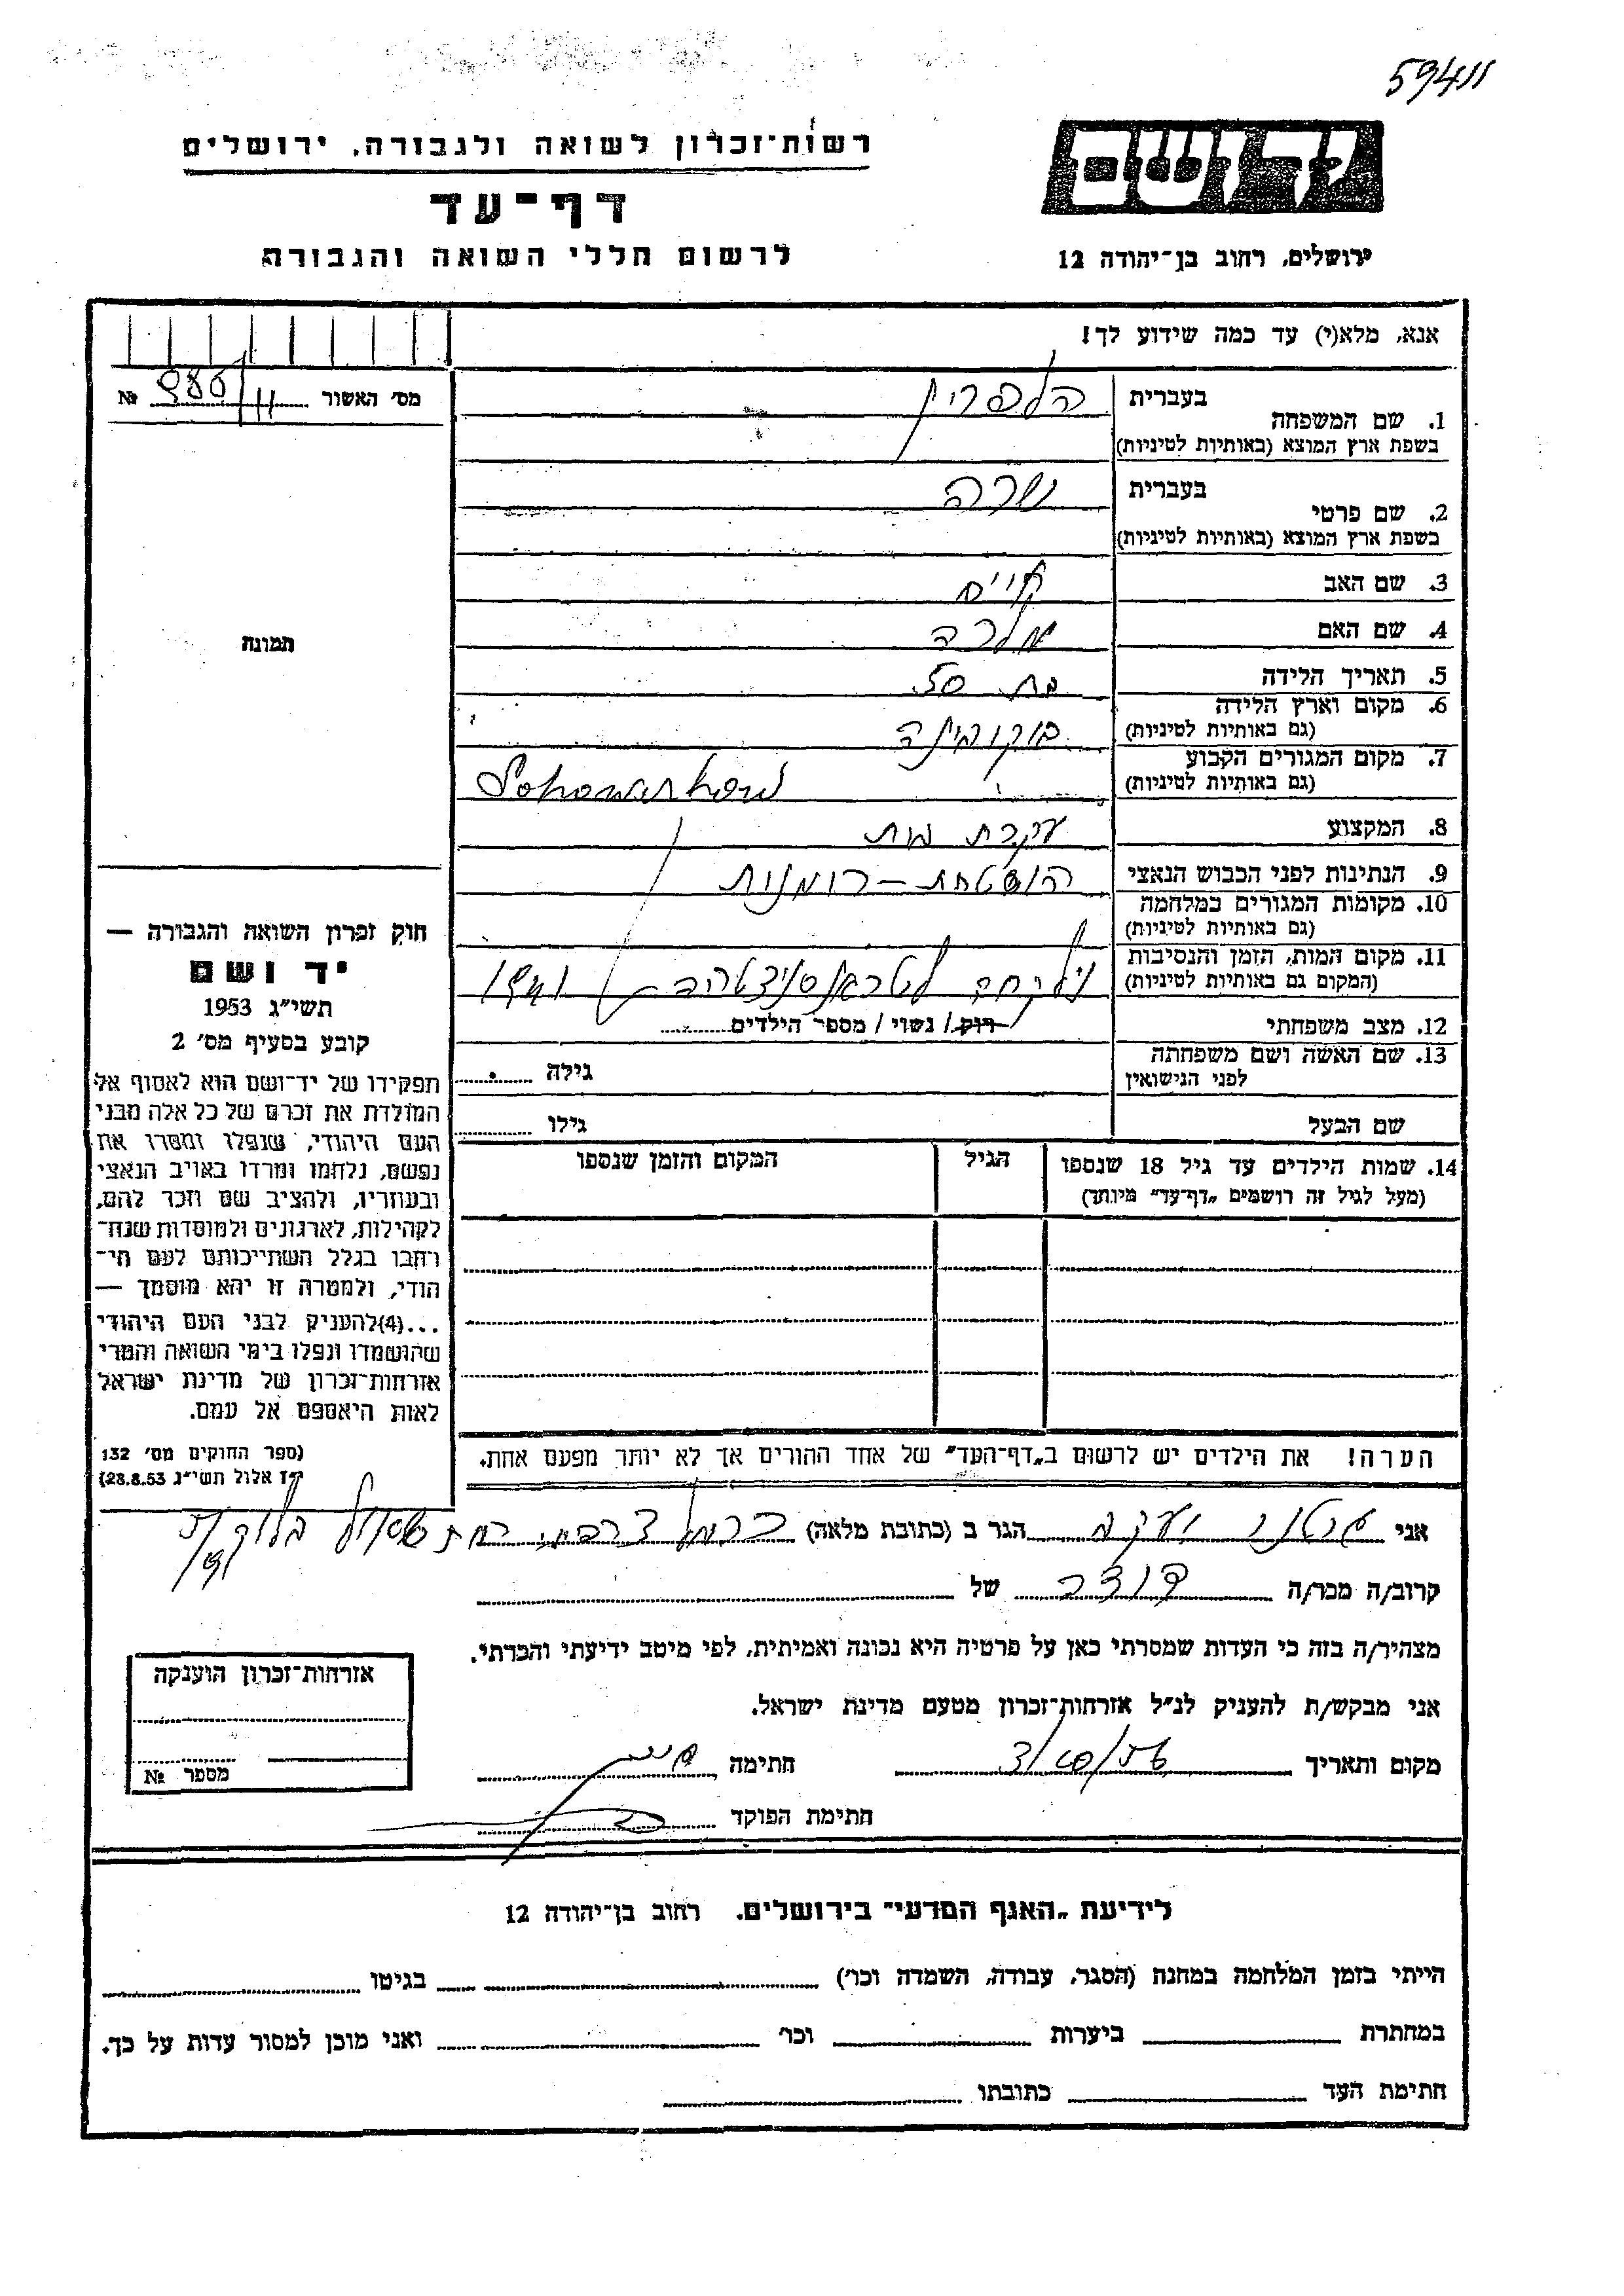 59411
רשות־זכרון לשואה ולגבורה, ירושלים
יד ושם
דף־עד
לרשום חללי השואה והגבורה
ירושלים, רחוב בן־יהודה 12
אנא, מלא(י) עד כמה שידוע לך!
מס' האשור № 11/
1. שם המשפחה
בעברית הלפרין
בשפת ארץ המוצא (באותיות לטיניות)
2. שם פרטי
בעברית שרה
בשפת ארץ המוצא (באותיות לטיניות)
3. שם האב חיים
4. שם האם
5. תאריך הלידה בת 50
6. מקום וארץ הלידה בוקובינה
(גם באותיות לטיניות)
7. מקום המגורים הקבוע
(גם באותיות לטיניות)
8. המקצוע עקרת בית
9. הנתינות לפני הכבוש הנאצי רומנית
10. מקומות המגורים במלחמה
(גם באותיות לטיניות)
11. מקום המות, הזמן והנסיבות
(המקום גם באותיות לטיניות)
12. מצב משפחתי רוק/ נשוי/ מספר הילדים
13. שם האשה ושם משפחתה גילה
לפני הנישואין
שם הבעל גילו
14. שמות הילדים עד גיל 18 שנספו הגיל המקום והזמן שנספו
(מעל לגיל זה רושמים „דף־עד” מיוחד)
הערה! את הילדים יש לרשום ב„דף־העד” של אחד ההורים אך לא יותר מפעם אחת.
תמונה
חוק זכרון השואה והגבורה —
יד ושם
תשי"ג 1953
קובע בסעיף מס' 2
תפקידו של יד־ושם הוא לאסוף אל
המולדת את זכרם של כל אלה מבני
העם היהודי, שנפלו ומסרו את
נפשם, נלחמו ומרדו באויב הנאצי
ובעוזריו, ולהציב שם וזכר להם,
לקהילות, לארגונים ולמוסדות שנח־
רבו בגלל השתייכותם לעם הי־
הודי, ולמטרה זו יהא מוסמך —
...(4)להעניק לבני העם היהודי
שהושמדו ונפלו בימי השואה והמרי
אזרחות־זכרון של מדינת ישראל
לאות היאספם אל עמם.
(ספר החוקים מס' 132
י"ז אלול תשי"ג 28.8.53)
אני יעקב הגר ב (כתובת מלאה)
קרוב/ה מכר/ה דודה של
מצהיר/ה בזה כי העדות שמסרתי כאן על פרטיה היא נכונה ואמיתית, לפי מיטב ידיעתי והכרתי.
אני מבקש/ת להעניק לנ"ל אזרחות־זכרון מטעם מדינת ישראל.
מקום ותאריך חתימה
חתימת הפוקד
אזרחות־זכרון הוענקה
מספר №
לידיעת „האגף המדעי” בירושלים. רחוב בן־יהודה 12
הייתי בזמן המלחמה במחנה (הסגר, עבודה, השמדה וכו') בגיטו
במחתרת ביערות וכו' ואני מוכן למסור עדות על כך.
חתימת העד כתובתו